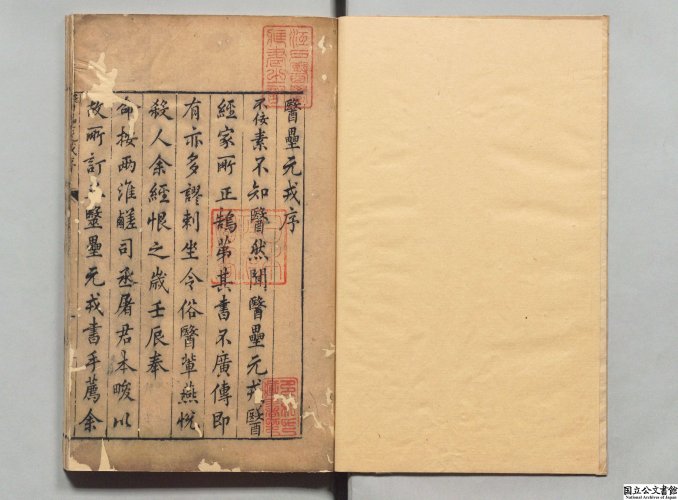 醫壘元戎序
不佞素不知醫然聞醫壘元戎醫
經家所正鵠第其書不廣傳即
有亦多謬剌坐令俗醫輩燕悅
殺人余經恨之歲壬辰奉
命按兩淮鹾司丞屠君本畯以
故所訂醫壘元戎書手薦余
国立公文書館
National Archives of Japan